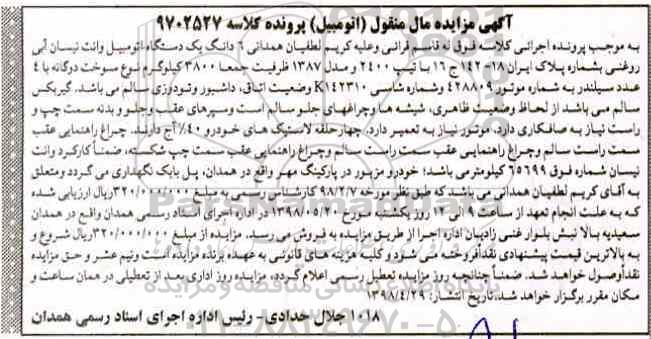 آگهی مزایده مال منقول (اتومبیل) پرونده کلاسه ۹۷۰۲۵۲۷
به موجب پرونده اجرائی کلاسه فوق له قاسم قرائی وعلیه کریم لطفیان همدانی ۶ دانگ یک دستگاه اتومبیل وانت نیسان آبی
روغنی بشماره پلاک ایران ۱۸-۱۴۲ ج ۱۶ با تیپ ۲۴۰۰ و مدل ۱۳۸۷ ظرفیت جمعا ۳۸۰۰ کیلوگرم نوع سوخت دوگانه با ۴
عدد سیلندر به شماره موتور ۴۲۸۸۰۹ وشماره شاسی K۱۴۲۳۱۰ وضعیت اتاق، داشبور وتودوزی سالم می باشد. گیربکس
سالم می باشد از لحاظ وضعیت ظاهری، شیشه ها وچراغهای جلو سالم است وسپرهای عقب وجلو و بدنه سمت چپ و
راست نیاز به صافکاری دارد. موتور نیاز به تعمیر دارد. چهارحلقه لاستیک های خودرو ۴۰٪ آج دارند. چراغ راهنمایی عقب
سمت راست سالم وچراغ راهنمایی عقب سمت راست سالم وچراغ راهنمایی عقب سمت چپ شکسته، ضمناً کارکرد وانت
نیسان شماره فوق ۶۵۶۹۹ کیلومترمی باشد؛ خودرو مزبور در پارکینگ مهر واقع در همدان، پل بابک نگهداری می گردد ومتعلق
به آقای کریم لطفیان همدانی می باشد که طبق نظر مورخه ۹۸/۲/۷ کارشناس رسمی به مبلغ ۳۲۰/۰۰۰/۰۰۰ریال ارزیابی شده
که به علت انجام تعهد از ساعت ۹ الی ۱۲ روز یکشنبه مورخ ۱۳۹۸/۰۵/۲۰ در اداره اجرای اسناد رسمی همدان واقع در همدان
سعیدیه بالا نبش بلوار غنی زادیان اداره اجرا از طریق مزایده به فروش می رسد. مزایده از مبلغ ۳۲۰/۰۰۰/۰۰۰ریال شروع و
به بالاترین قیمت پیشنهادی نقدا فروخته می شود و کلیه هزینه های قانونی به عهده برنده مزایده است ونیم عشر و حق مزایده
نقدا وصول خواهد شد. ضمناً چنانچه روز مزایده تعطیل رسمی اعلام گردد، مزایده روز اداری بعد از تعطیلی در همان ساعت و
مکان مقرر برگزار خواهد شد.تاریخ انتشار: ۱۳۹۸/۴/۲۹
۱۰۱۸ جلال حدادی- رئیس اداره اجرای اسناد رسمی همدان